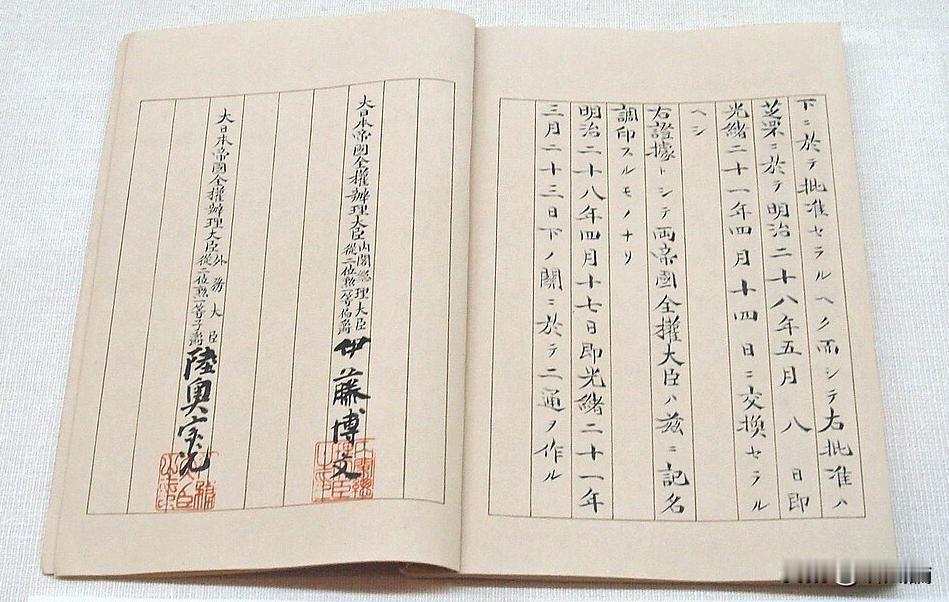 下ニ於テ批准セラルヘク而シテ右批准ハ
芝罘ニ於テ明治二十八年五月八日即
光緒二十一年四月十四日ニ交換セラル
ヘシ
右證據トシテ両帝國全權大臣ハ茲ニ記名
調印スルモノナリ
明治二十八年四月十七日即光緒二十一年
三月二十三日下ノ關ニ於テ二通ノ作ル
大日本帝國全權辦理大臣
內閣總理大臣
從二位勲一等伯爵
伊藤博文
大日本帝國全權辦理大臣
外務大臣
從二位勲一等子爵
陸奥宗光